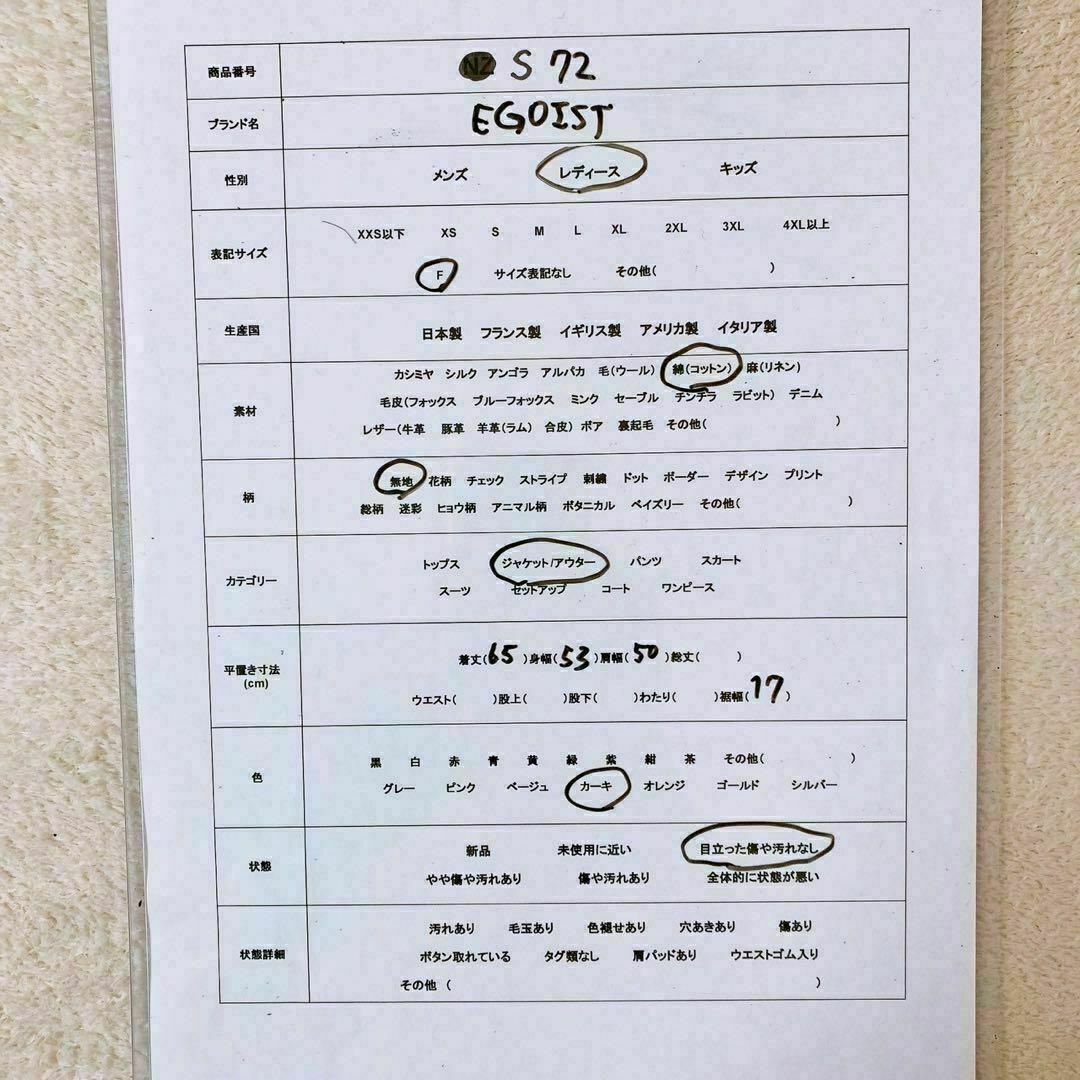 商品番号 NZ S 72
ブランド名 EGOIST
性別 メンズ レディース キッズ
XXS以下 XS S M L XL 2XL 3XL 4XL以上
表記サイズ
F サイズ表記なし その他( )
生産国 日本製 フランス製 イギリス製 アメリカ製 イタリア製
カシミヤ シルク アンゴラ アルパカ 毛(ウール) 綿(コットン) 麻(リネン)
素材 毛皮(フォックス ブルーフォックス ミンク セーブル チンチラ ラビット) デニム
レザー(牛革 豚革 羊革(ラム) 合皮) ボア 裏起毛 その他( )
無地 花柄 チェック ストライプ 刺繍 ドット ボーダー デザイン プリント
柄
総柄 迷彩 ヒョウ柄 アニマル柄 ボタニカル ペイズリー その他( )
トップス ジャケット/アウター パンツ スカート
カテゴリー
スーツ セットアップ コート ワンピース
着丈(65)身幅(53)肩幅(50)総丈( )
平置き寸法
(cm)
ウエスト( )股上( )股下( )わたり( )裾幅(17)
黒 白 赤 青 黄 緑 紫 紺 茶 その他( )
色
グレー ピンク ベージュ カーキ オレンジ ゴールド シルバー
新品 未使用に近い 目立った傷や汚れなし
状態
やや傷や汚れあり 傷や汚れあり 全体的に状態が悪い
汚れあり 毛玉あり 色褪せあり 穴あきあり 傷あり
状態詳細 ボタン取れている タグ類なし 肩パッドあり ウエストゴム入り
その他 ( )